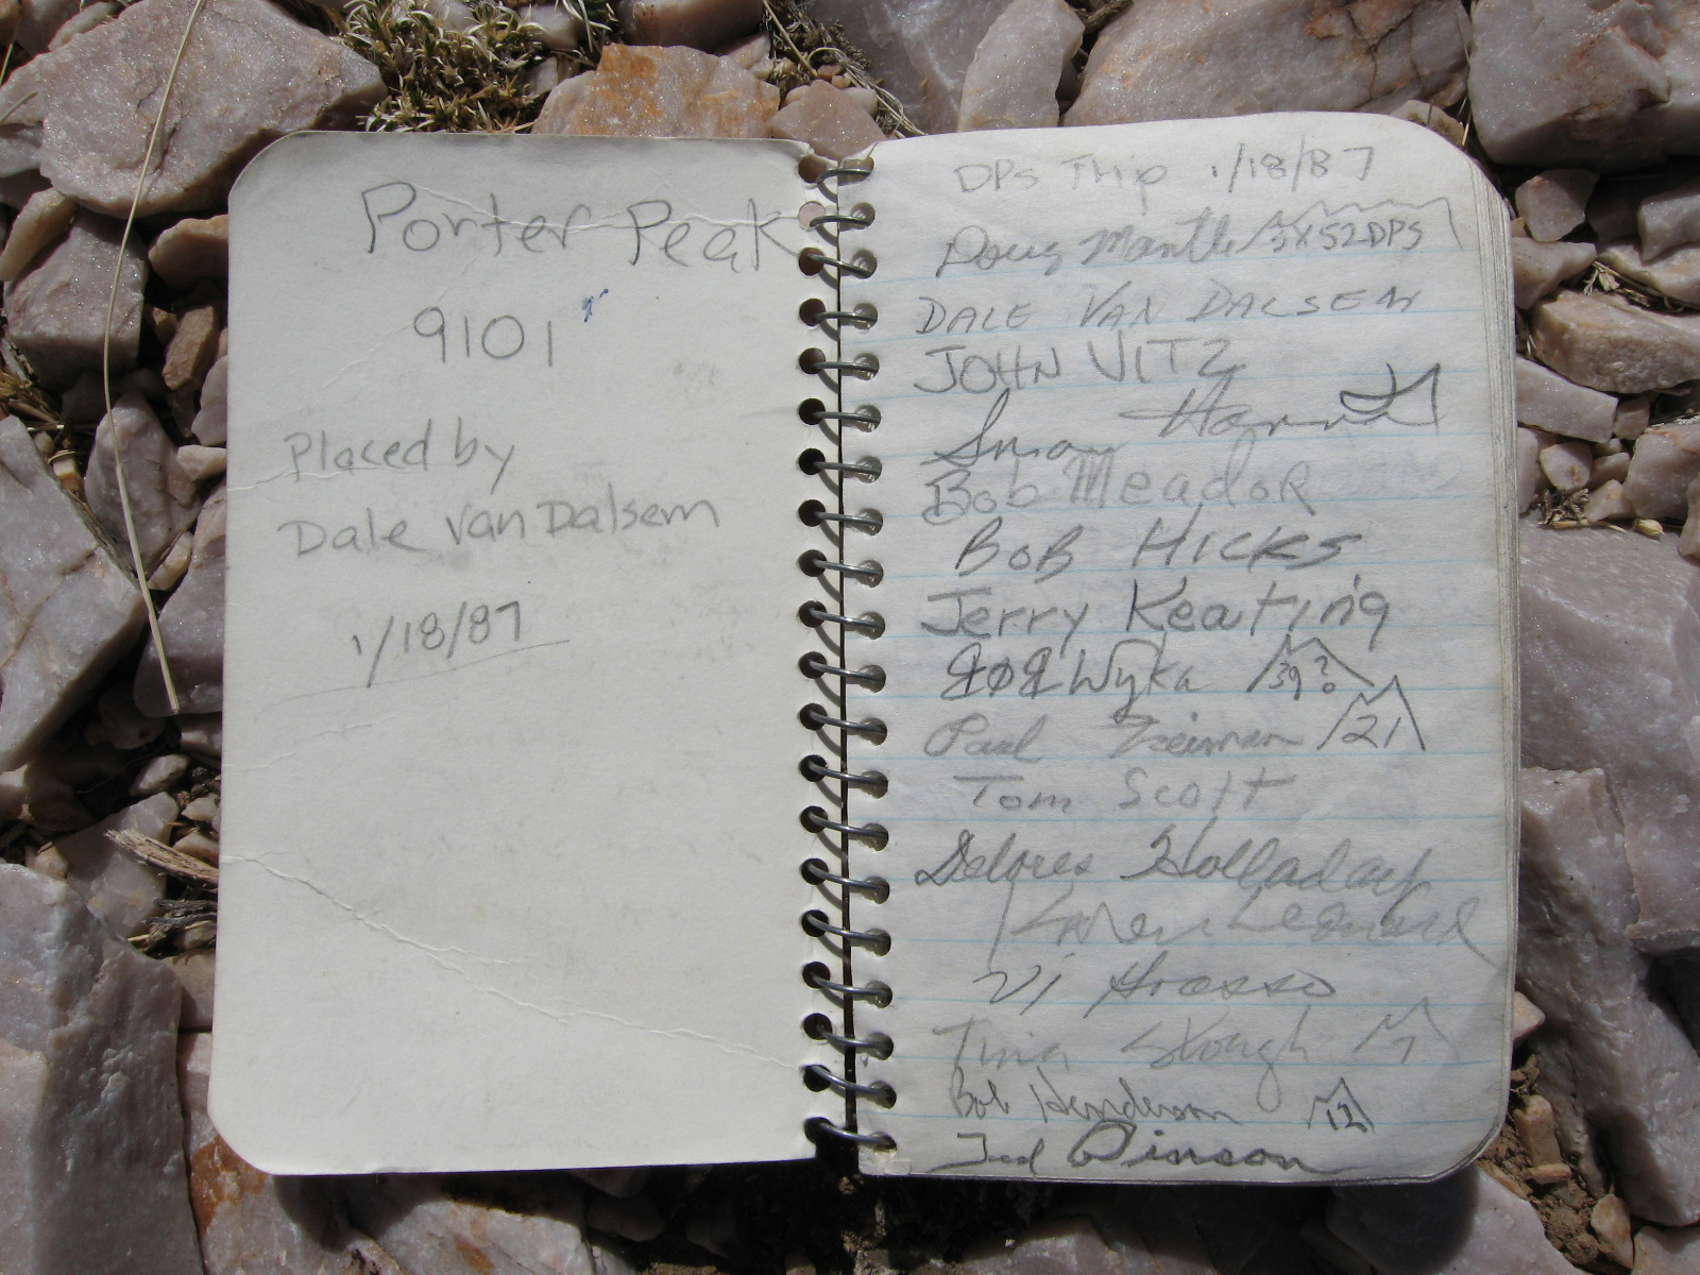 Porter Peak
9101'
Placed by
Dale Van Dalsem
1/18/87
DPS Trip 1/18/87
Doug Mantle 3X52DPS
DALE VAN DALSEM
JOHN VITZ
Hanna
Bob Meador
BOB HICKS
Jerry Keating
Wyka 39?
Paul 21
Tom Scott
Delores Holladay
Vi Grasso
Tina Stough 7
Bob Henderson 12